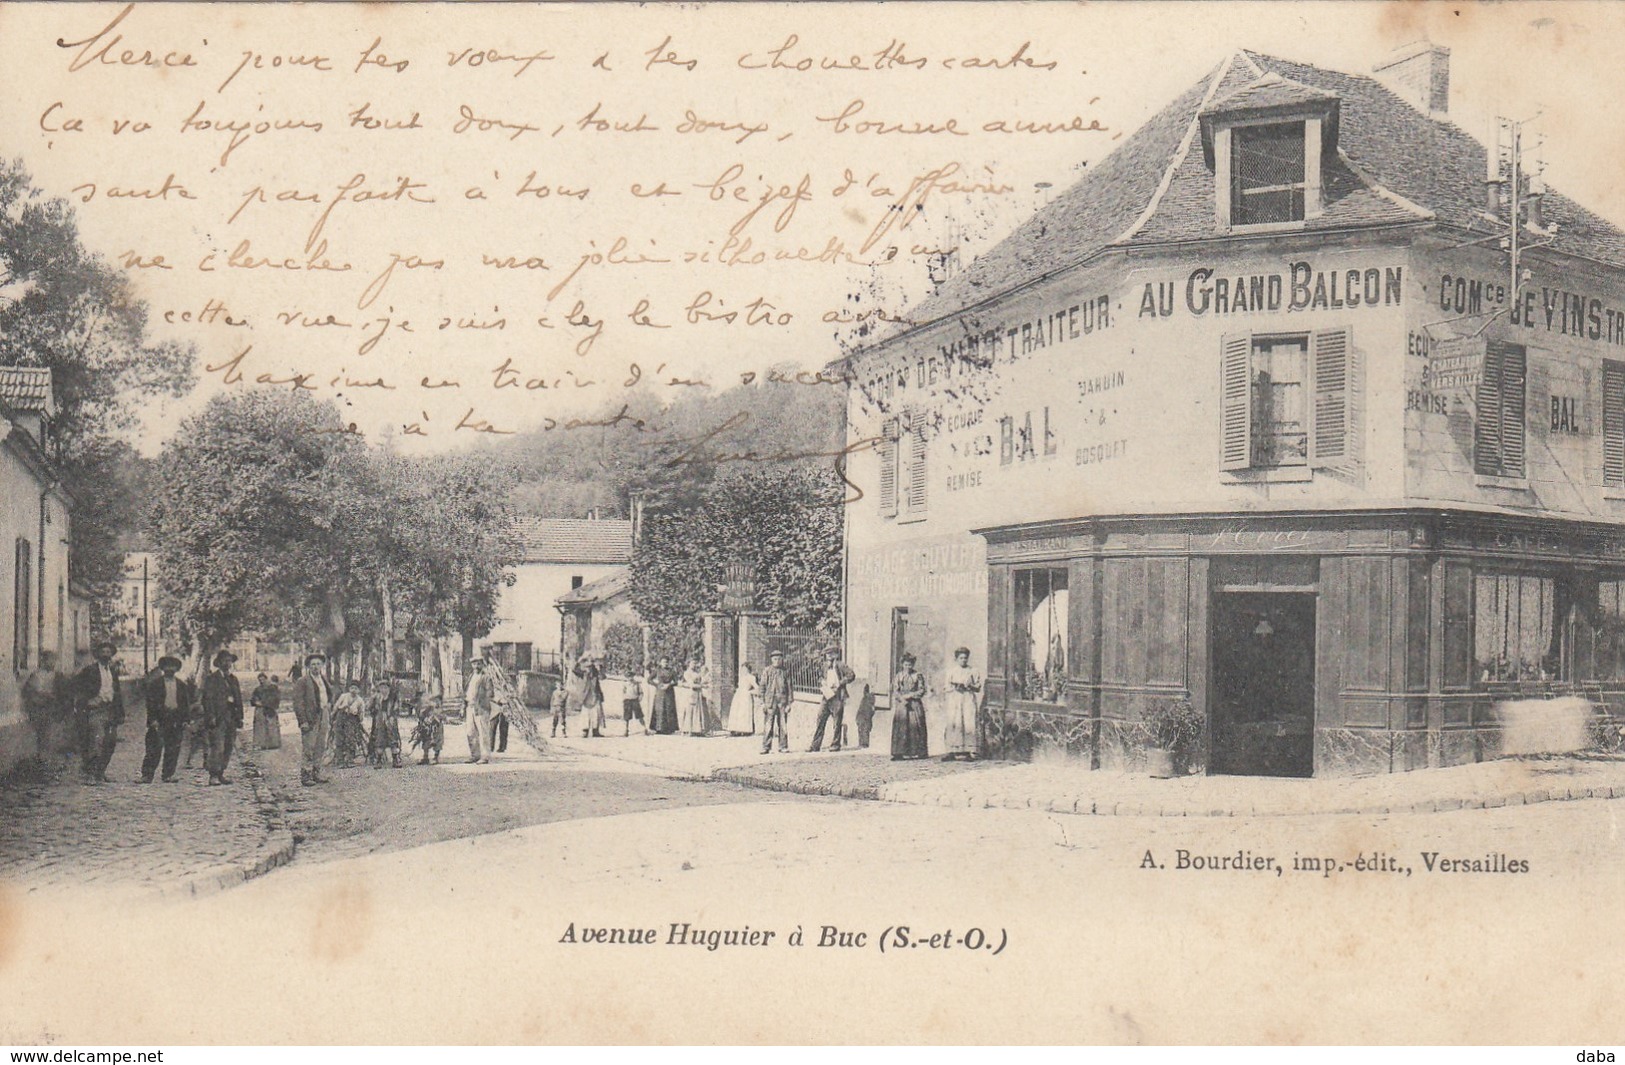 Merci pour tes voeux & tes chouettes cartes.
Ça va toujours tout doux, tout doux, bonne année,
santé parfaite à tous et bézef d'affaires
ne cherche pas ma jolie silhouette sur
cette vue, je suis chez le bistro avec
Maxime en train d'en sucer
à ta santé
AU GRAND BALCON
COMce DE VINS TRAITEUR
COMce DE VINS TR
ÉCURIE
&
REMISE
BAL
JARDIN
&
BOSQUET
BAL
REMISE
VERSAILLES
GARAGE COUVERT
CYCLES & AUTOMOBILES
JARDIN
CAFÉ
A. Bourdier, imp.-édit., Versailles
Avenue Huguier à Buc (S.-et-O.)
www.delcampe.net
daba